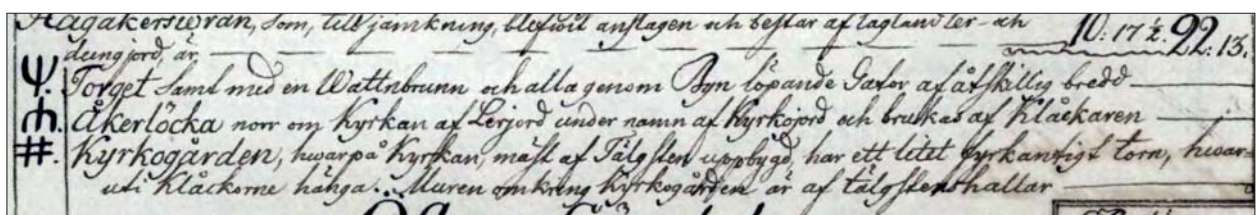 Hagakerswran, som, till jämkning, blefwit anslagen och består af lagland ler- och 10: 17½. 22: 13.
deung jord, är
Ψ. Torget samt med en Wattnbrunn och alla genom Byn löpande Gator af åtskillig bredd
Åkerlöcka norr om Kyrkan af Lerjord under namn af Kyrkojord och brukas af Klåckaren
#. Kyrkogården, hwarpå Kyrkan, mäst af Tälgsten uppbygd, har ett litet fyrkantigt torn, hwar-
uti Klåckorne hänga. Muren omkring Kyrkogården är af tälgstenshallar